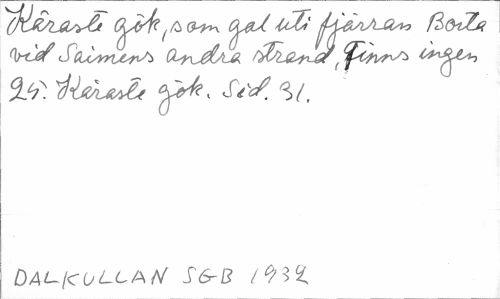 Käraste gök, som gal uti fjärran Borta
vid Saimens andra strand, Finns ingen
25. Käraste gök. Sid. 31.
DALKULLAN SGB 1932